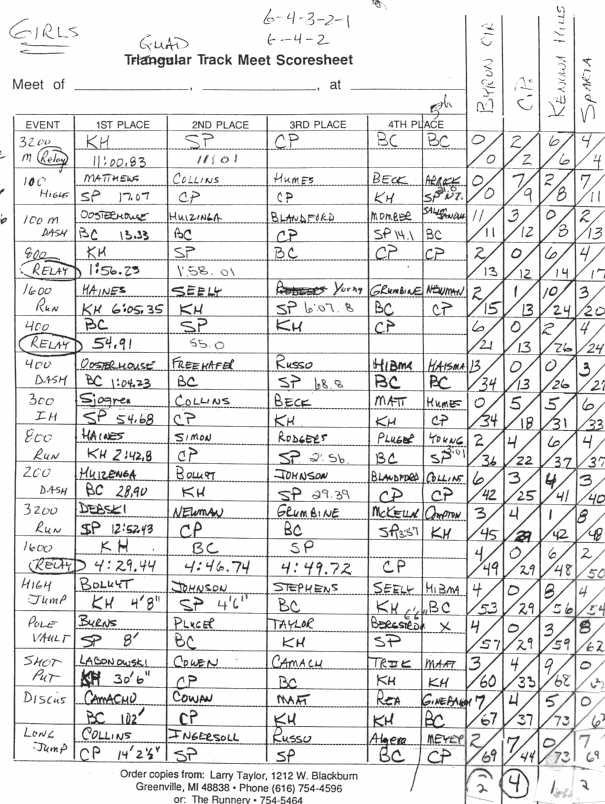 GIRLS
6-4-3-2-1
QUAD 6-4-2
Triangular Track Meet Scoresheet
Meet of , , at
BYRON CTR C.P. KENOWA HILLS SPARTA
EVENT 1ST PLACE 2ND PLACE 3RD PLACE 4TH PLACE 5th
3200 KH SP CP BC BC 0 2 6 4
m Relay 11:00.83 11:01 0 2 6 4
100 MATTHEWS COLLINS HUMES BECK 0 7 2 7
HIGH SP 17.07 CP CP KH SP 0 9 8 11
100 m OOSTERHOUSE HUIZINGA BLANDFORD MOMBER 11 3 0 2
DASH BC 13.33 BC CP SP 14.1 BC 11 12 8 13
800 KH SP BC CP CP 2 0 6 4
RELAY 1:56.23 1:58.01 13 12 14 17
1600 HAINES SEELY Young GRUMBINE NEWMAN 2 1 10 3
RUN KH 6:05.35 KH SP 6:07.8 BC CP 15 13 24 20
400 BC SP KH CP 6 0 2 4
RELAY 54.91 55.0 21 13 26 24
400 OOSTERHOUSE FREEHAFER RUSSO HIBMA HAISMA 13 0 0 3
DASH BC 1:04.23 BC SP 68.8 BC BC 34 13 26 27
300 Sjogren COLLINS BECK MATT HUMES 0 5 5 6
IH SP 54.68 CP KH KH CP 34 18 31 33
800 HAINES SIMON RODGERS PLUGER YOUNG 2 4 6 4
RUN KH 2:42.8 CP SP 2:56. BC SP 3:01 36 22 37 37
200 HUIZENGA BOLUYT JOHNSON BLANDFORD COLLINS 6 3 4 3
DASH BC 28.90 KH SP 29.39 CP CP 42 25 41 40
3200 DEBSKI NEWMAN GRUMBINE MCKELLA COMPTON 3 4 1 8
RUN SP 12:52.43 CP BC SP 1357 KH 45 29 42 48
1600 KH BC SP 4 0 6 2
RELAY 4:29.44 4:46.74 4:49.72 CP 49 29 48 50
HIGH BOLUYT JOHNSON STEPHENS SEELY HIBMA 4 0 8 4
JUMP KH 4'8" SP 4'6" BC KH BC 53 29 56 54
POLE BURNS PLUGER TAYLOR BERGSTROM X 4 0 3 8
VAULT SP 8' BC KH SP 57 29 59 62
SHOT LAGONOWSKI COWEN CAMACH TRIK MATT 3 4 9 0
PUT KH 30'6" CP BC KH KH 60 33 68 62
DISCUS CAMACHO COWAN MATT REA GINEBAUGH 7 4 5 0
BC 102' CP KH KH BC 67 37 73 62
LONG COLLINS INGERSOLL RUSSO Algera MEYER 2 7 0 7
JUMP CP 14'2½" SP SP BC CP 69 44 73 69
2 4 1 2
Order copies from: Larry Taylor, 1212 W. Blackburn
Greenville, MI 48838 • Phone (616) 754-4596
or: The Runnery • 754-5464